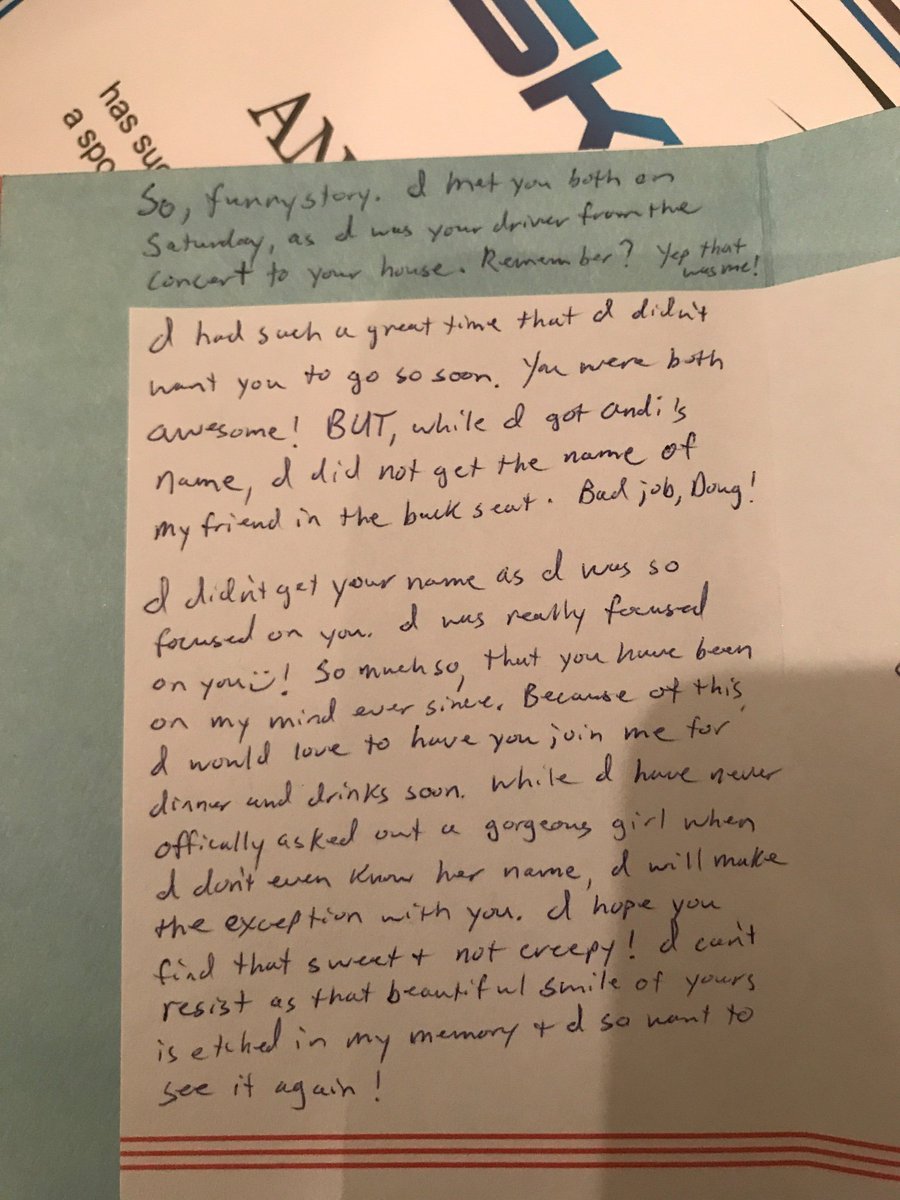 SK
AN
has suc
a spo
So, funny story. I met you both on
Saturday, as I was your driver from the
concert to your house. Remember? Yep that
was me!
I had such a great time that I didn't
want you to go so soon. You were both
awesome! BUT, while I got Andi's
name, I did not get the name of
my friend in the back seat. Bad job, Doug!
I didn't get your name as I was so
focused on you. I was really focused
on you :)! So much so, that you have been
on my mind ever since. Because of this,
I would love to have you join me for
dinner and drinks soon. While I have never
offically asked out a gorgeous girl when
I don't even know her name, I will make
the exception with you. I hope you
find that sweet + not creepy! I can't
resist as that beautiful smile of yours
is etched in my memory + I so want to
see it again!